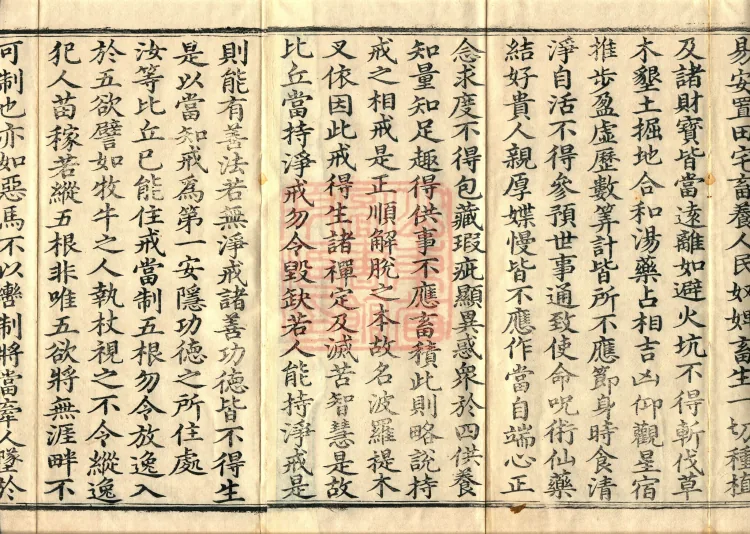 易安置田宅畜養人民奴婢畜生一切種植
及諸財寶皆當遠離如避火坑不得斬伐草
木墾土掘地合和湯藥占相吉凶仰觀星宿
推步盈虛歷數筭計皆所不應節身時食清
淨自活不得參預世事通致使命呪術仙藥
結好貴人親厚媟慢皆不應作當自端心正
念求度不得包藏瑕疵顯異惑衆於四供養
知量知足趣得供事不應畜積此則略說持
戒之相戒是正順解脫之本故名波羅提木
叉依因此戒得生諸禪定及滅苦智慧是故
比丘當持淨戒勿令毀缺若人能持淨戒是
則能有善法若無淨戒諸善功德皆不得生
是以當知戒為第一安隱功德之所住處
汝等比丘已能住戒當制五根勿令放逸入
於五欲譬如牧牛之人執杖視之不令縱逸
犯人苗稼若縱五根非唯五欲將無涯畔不
可制也亦如惡馬不以轡制將當牽人墜於